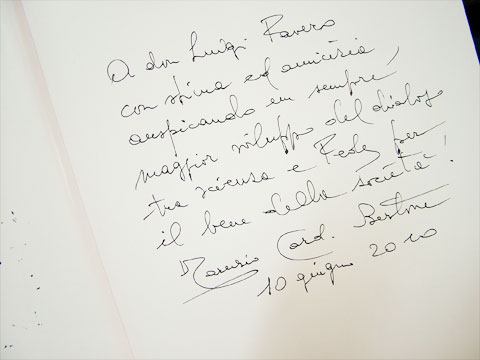 A don Luigi Ravero
con stima ed amicizia
auspicando un sempre
maggior sviluppo del dialogo
tra scienza e Fede, per
il bene della società!
Tarcisio Card. Bertone
10 giugno 2010